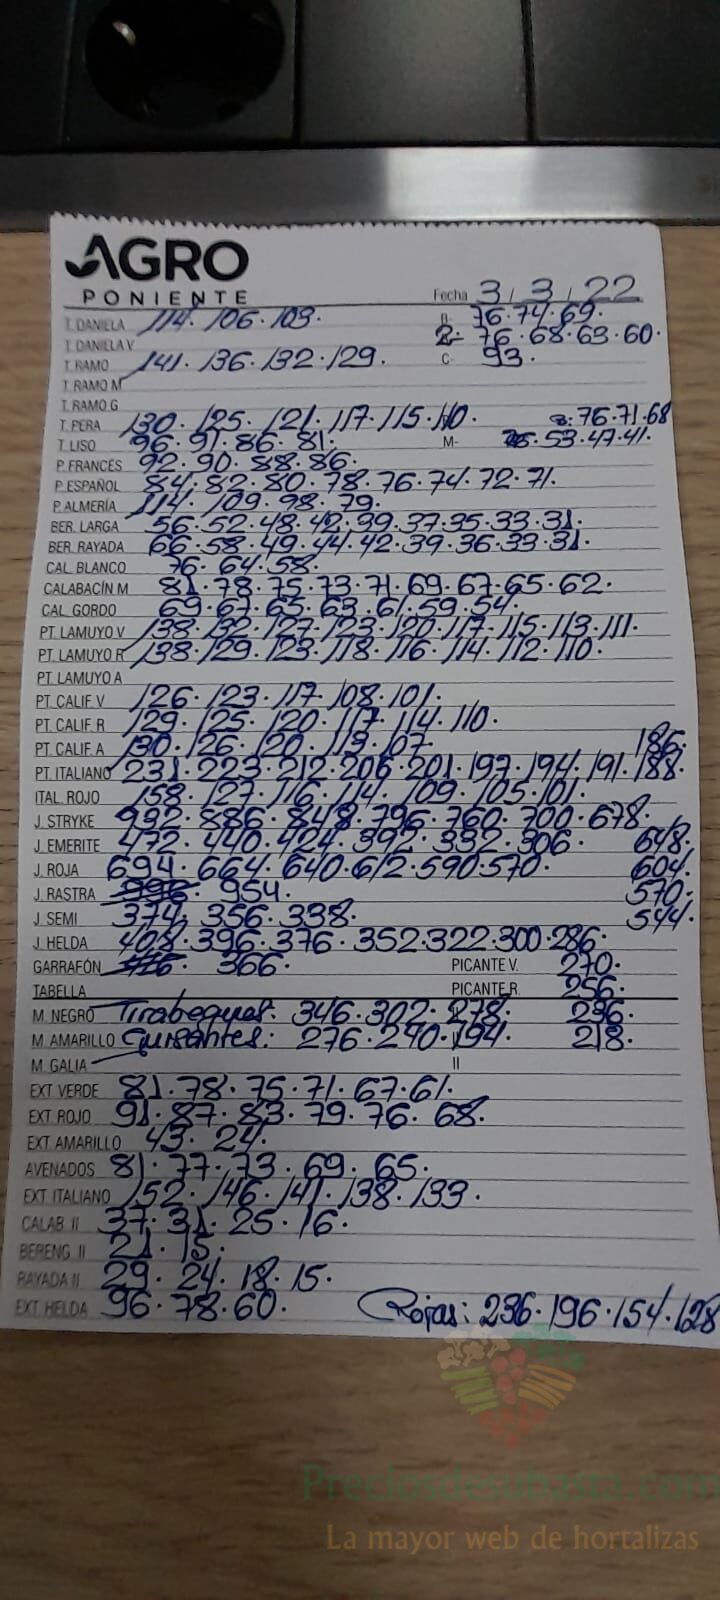 AGRO
PONIENTE
Fecha 3 / 3 / 22
T. DANIELA 114. 106. 103. 76. 74. 69.
T. DANELA V 2- 76. 68. 63. 60.
T. RAMO 141. 136. 132. 129. C- 93.
T. RAMO M
T. RAMO G
T. PERA 130. 125. 121. 117. 115. 110. 76. 71. 68
T. LISO 96. 91. 86. 81. M- 53. 47. 41.
P. FRANCÉS 92. 90. 88. 86.
P. ESPAÑOL 84. 82. 80. 78. 76. 74. 72. 71.
P. ALMERÍA 114. 109. 98. 79.
BER. LARGA 56. 52. 48. 42. 39. 37. 35. 33. 31.
BER. RAYADA 66. 58. 49. 44. 42. 39. 36. 33. 31.
CAL. BLANCO 76. 64. 58.
CALABACÍN M 81. 78. 75. 73. 71. 69. 67. 65. 62.
CAL. GORDO 69. 67. 65. 63. 61. 59. 54.
PT. LAMUYO V 138. 132. 127. 123. 120. 117. 115. 113. 111.
PT. LAMUYO R 138. 129. 123. 118. 116. 114. 112. 110.
PT. LAMUYO A
PT. CALIF. V 126. 123. 117. 108. 101.
PT. CALIF. R 129. 125. 120. 117. 114. 110.
PT. CALIF. A 130. 126. 120. 113. 107. 186.
PT. ITALIANO 231. 223. 212. 206. 201. 197. 194. 191. 188.
ITAL. ROJO 158. 127. 116. 114. 109. 105. 101.
J. STRYKE 992. 886. 848. 796. 760. 700. 678.
J. EMERITE 472. 440. 424. 392. 332. 306. 648.
J. ROJA 694. 664. 640. 612. 590. 570. 604.
J. RASTRA 954. 570.
J. SEMI 374. 356. 338. 544.
J. HELDA 408. 396. 376. 352. 322. 300. 286.
GARRAFÓN 366. PICANTE V. 270.
TABELLA PICANTE R. 256.
M. NEGRO Tirabeques: 346. 302. 278. 236.
M. AMARILLO Guisantes: 276. 240. 194. 218.
M. GALIA II
EXT VERDE 81. 78. 75. 71. 67. 61.
EXT. ROJO 91. 87. 83. 79. 76. 68.
EXT AMARILLO 43. 24.
AVENADOS 81. 77. 73. 69. 65.
EXT. ITALIANO 152. 146. 141. 138. 133.
CALAB. II 37. 31. 25. 16.
BERENG. II 21. 15.
RAYADA II 29. 24. 18. 15.
EXT. HELDA 96. 78. 60. Rojas: 236. 196. 154. 128
Preciosdesubasta.com
La mayor web de hortalizas